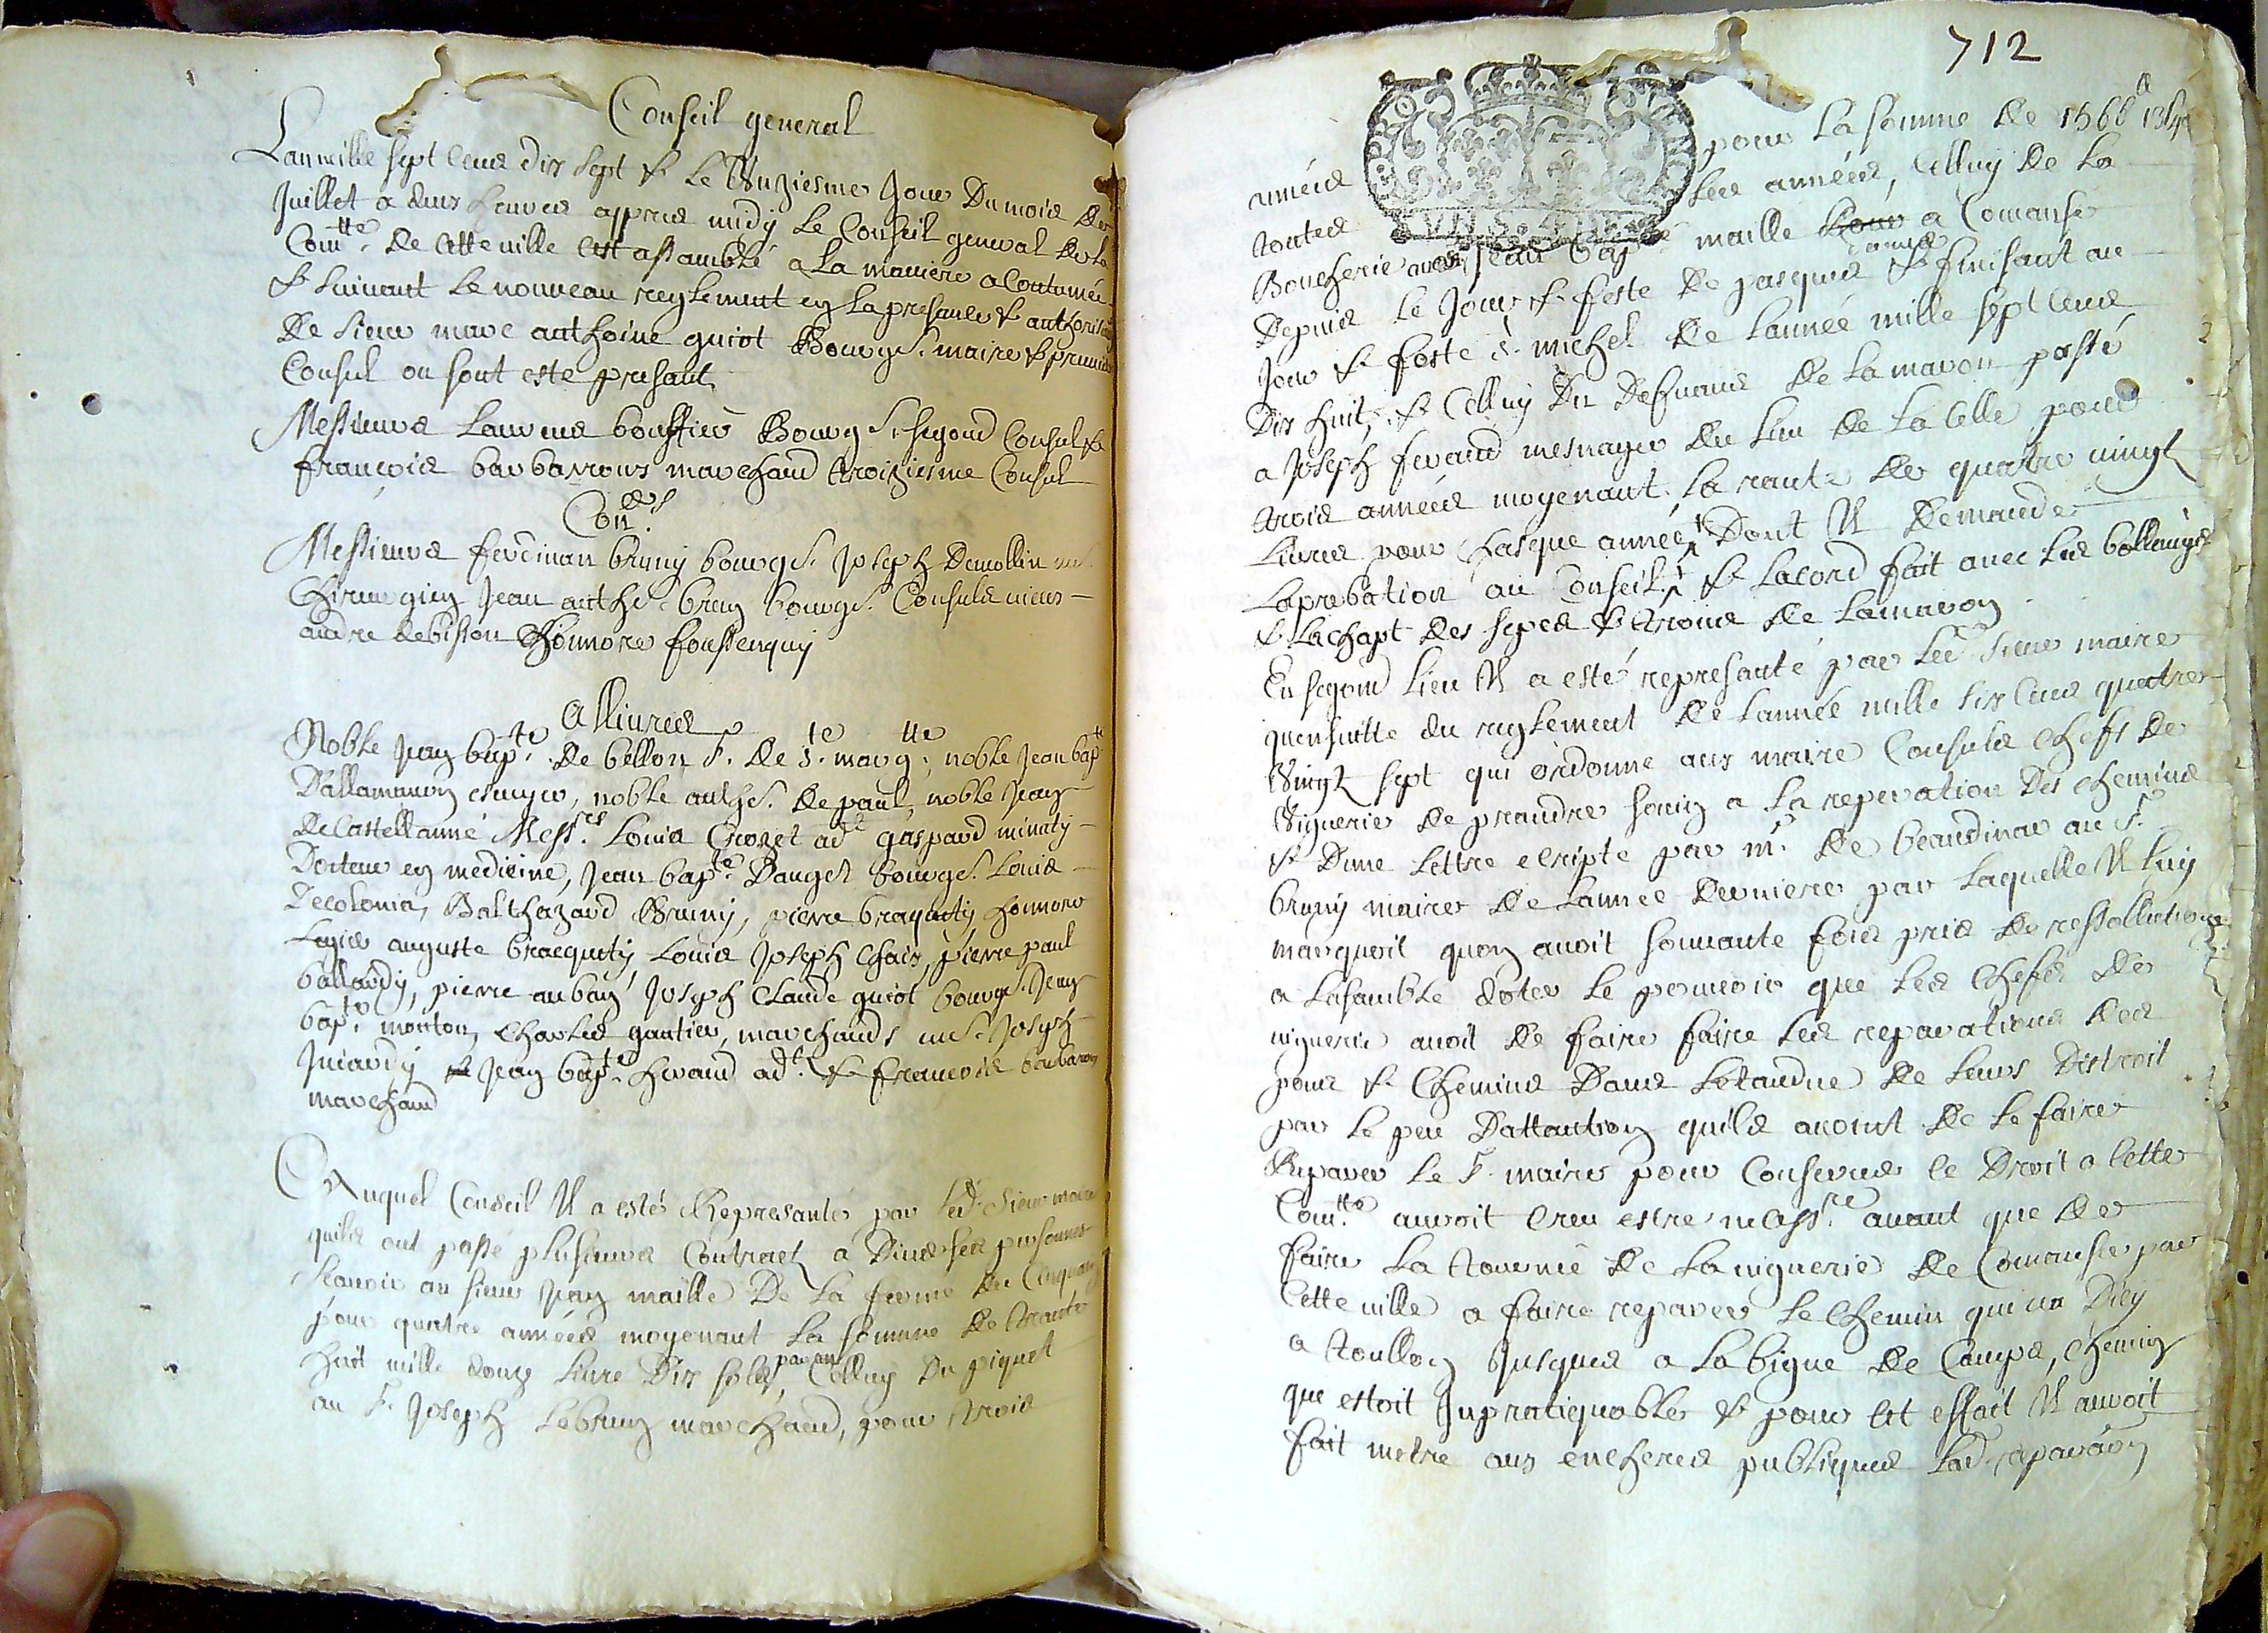 Conseil general
Lan mille sept cens dix sept & le Unziesme Jour Du mois de
Juillet a deux heures appres midy Le Conseil general de la
Com.tte De cette ville cest assamblé a La maniere acoutumée
& Suivant Le nouveau reglement en La presance & authorisaon
De Sieur marc anthoine guiot Bourgs. maire & premier
Consul ou sont este presant
Messieurs Laurens boussier Bourgs. segond Consul &
francois barbarrous marchand troiziesme Consul
Con.ers
Messieurs ferdinan bruny bourgs. Joseph Demollin me
Chirurgien Jean anthe. brun bourgs. Consuls vieux
andre debisson honnore foussenquy
Allivrés
Noble Jean bap.te De bellon Sr. De S.te marg.tte, noble Jean bap.te
Dallamanon escuyer, noble anthe. De paul, noble Jean
De Castellanne Mess.rs Louis Crozet ad.t gaspard minuty
Docteur en medicine, Jean bap.te Daugei bourgs. Louis
Decolonia, Balthazard Bruny, pierre braquety honnore
Legier auguste bracquety Louis Joseph Chaix, pierre paul
ballardy, pierre auban Joseph Claude guiot bourgs. Jean
bap.te mouton, Charles gautier, marchands me. Joseph
Juiardy Jean bap.te heraud ad.t & francois barbaroux
marchand
Auquel Conseil Il a esté Representé par led. Sieur maire
quils ont passé plusieurs Contract a Diverses personnes
scavoir au sieur Jean maille De La ferme du Cinquain
pour quatre années moyenant La somme de trante
huit mille douze Livre Dix sols par an, Celluy Du piquet
au Sr. Joseph Lebrun marchand, pour trois
712
années pour La somme De 1566 ll 13 s 4 d
toutes les années, Celluy De La
Boucherie avec Jean bap.te maille a Comansé
Depuis Le Jour & feste De pasques & finisant au
Jour & feste S. michel De Lannée mille sept cens
Dix huit, & Celluy Du Defvans De Lamaron passé
a Joseph feraud mesnager Du Lieu De La Celle pour
trois années moyenant La rante De quatre vingt
Livres pour chasque année Dont Il Demande
Laprobation au Conseil & Lacord fait avec Les bollengés
& Lachapt Des seps & trone De Lamaron
En segond Lieu Il a esté represanté par led. Sieur maire
quensuitte du reglement De Lannée mille six cens quatre
Vingt sept qui ordonne aux maire Consuls Chefs De
Viguerie De prandre soing a La reperation Des chemins
& Dune Lettre escripte par mr. De beaudinar au Sr.
bruny maire De Lannée Derniere par Laquelle Il Luy
marquoit quon avoit souvante fois pris De ressollutions
a Lasamblé doter Le pouvoir que Les Chefs De
viguerie avoit De faire faire Les reparations Des
pons & Chemins Dans Lestandue De Leurs Distroit
par Le peu Dattantion quils avoint De Le faire
Reparer Le Sr. maire pour Conserver le Droit a cette
Com.tte auroit creu estre necess.re avant que De
faire La tournée De La viguerie De Comanser par
Cette ville a faire reparer Le chemin qui va Dicy
a toullon Jusques a La bigue De Camps, chemin
que estoit Inpratiquable & pour cet effait Il auroit
fait metre aux encheres publiques Lad. reparaon